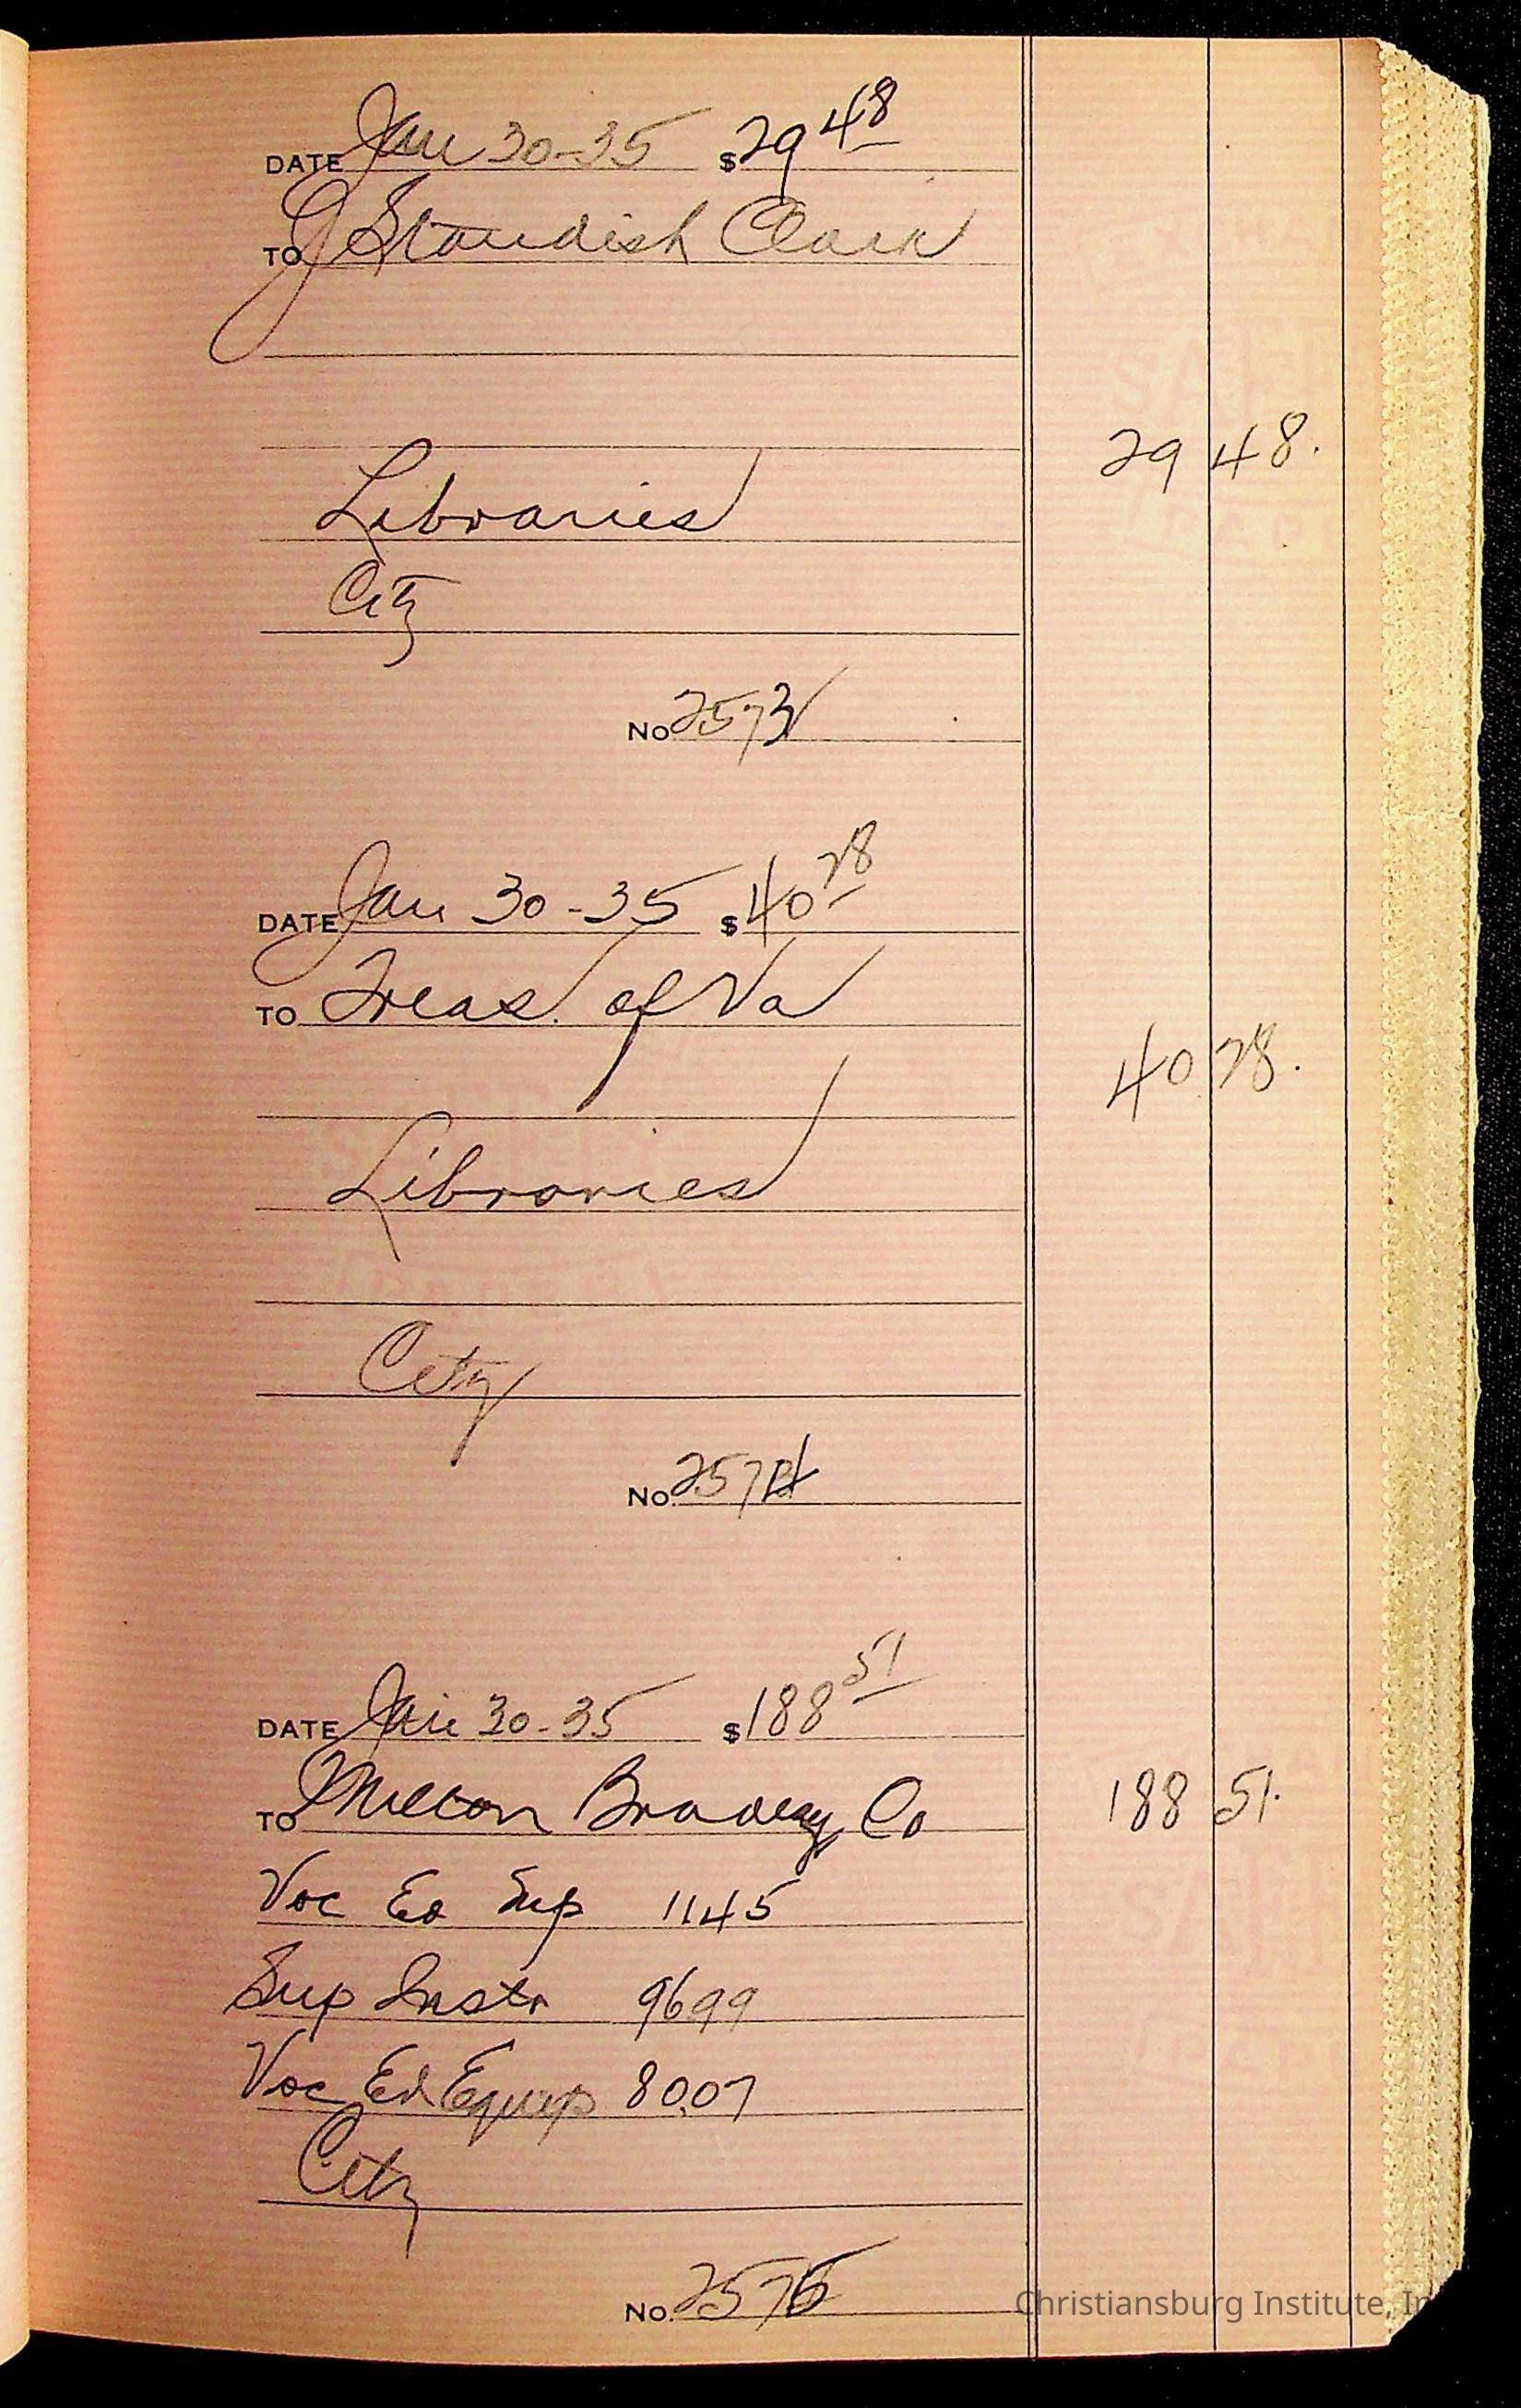 DATE Jan 30-35 $29 48
TO J Standish Clark
29 48.
Libraries
City
No. 2573
DATE Jan 30-35 $40 28
TO Treas. of Va
40 28.
Libraries
City
No. 2574
DATE Jan 30-35 $188 51
TO Milton Bradley Co
188 51.
Voc Ed Sup 1145
Sup Instr 9699
Voc Ed Equip 80.07
City
No. 2575
Christiansburg Institute, In